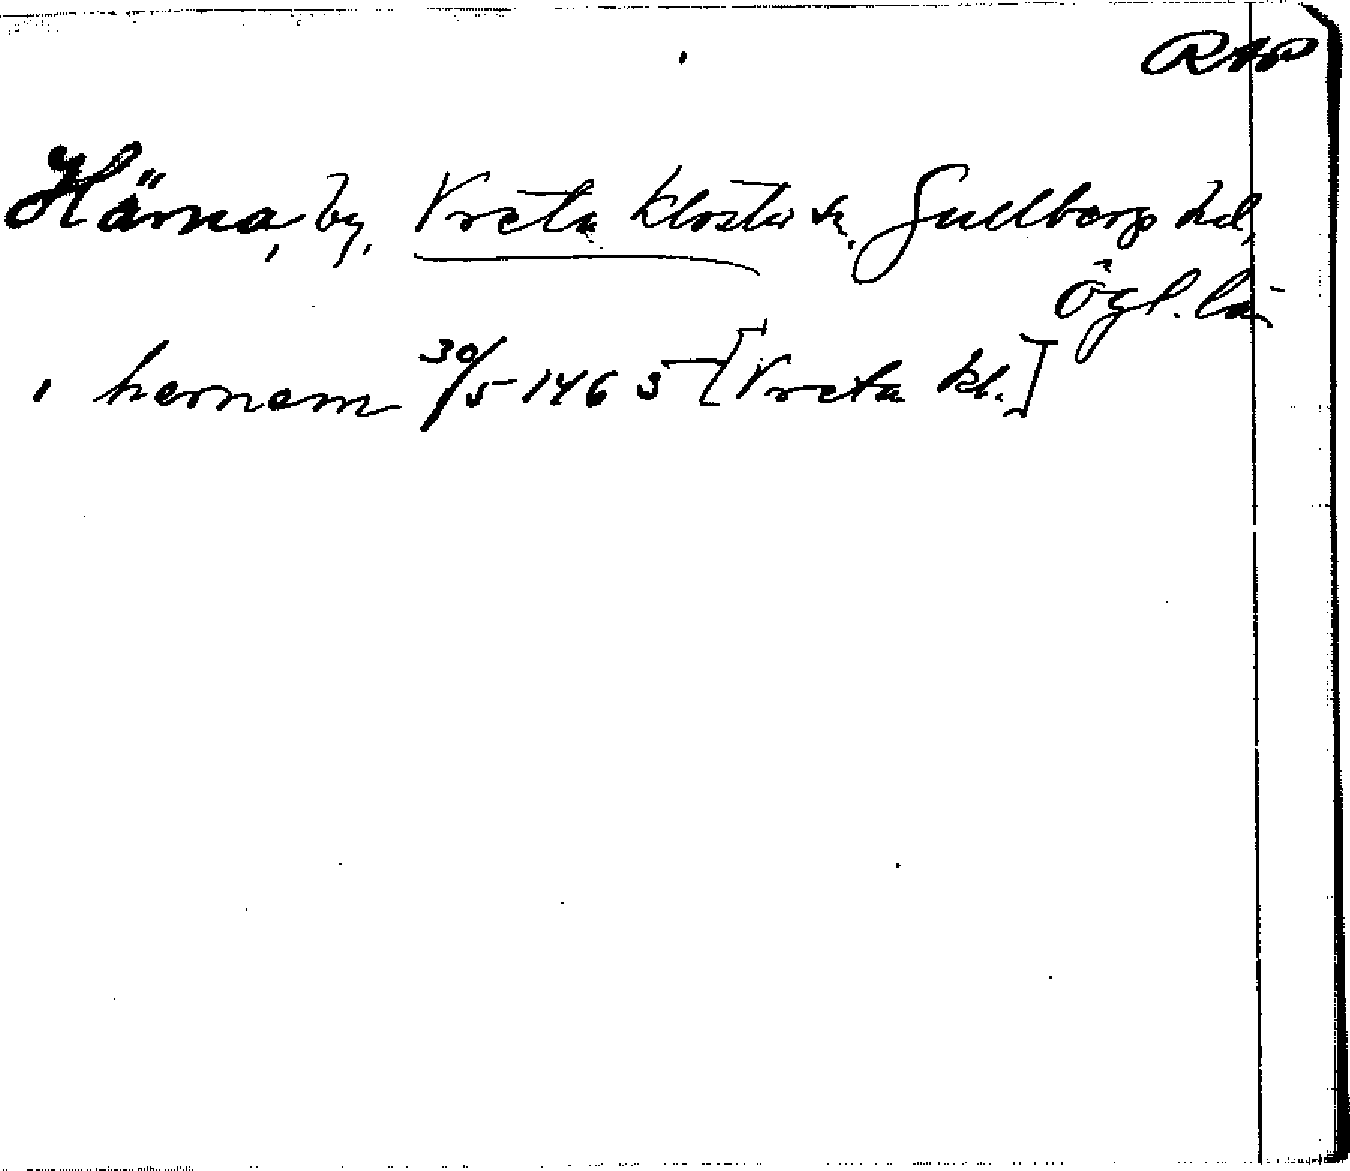 RAP
Härna, by, Vreta kloster sn, Gullbergs hd,
Ögl. län
i hernem 30/5 1465 [Vreta kl.]